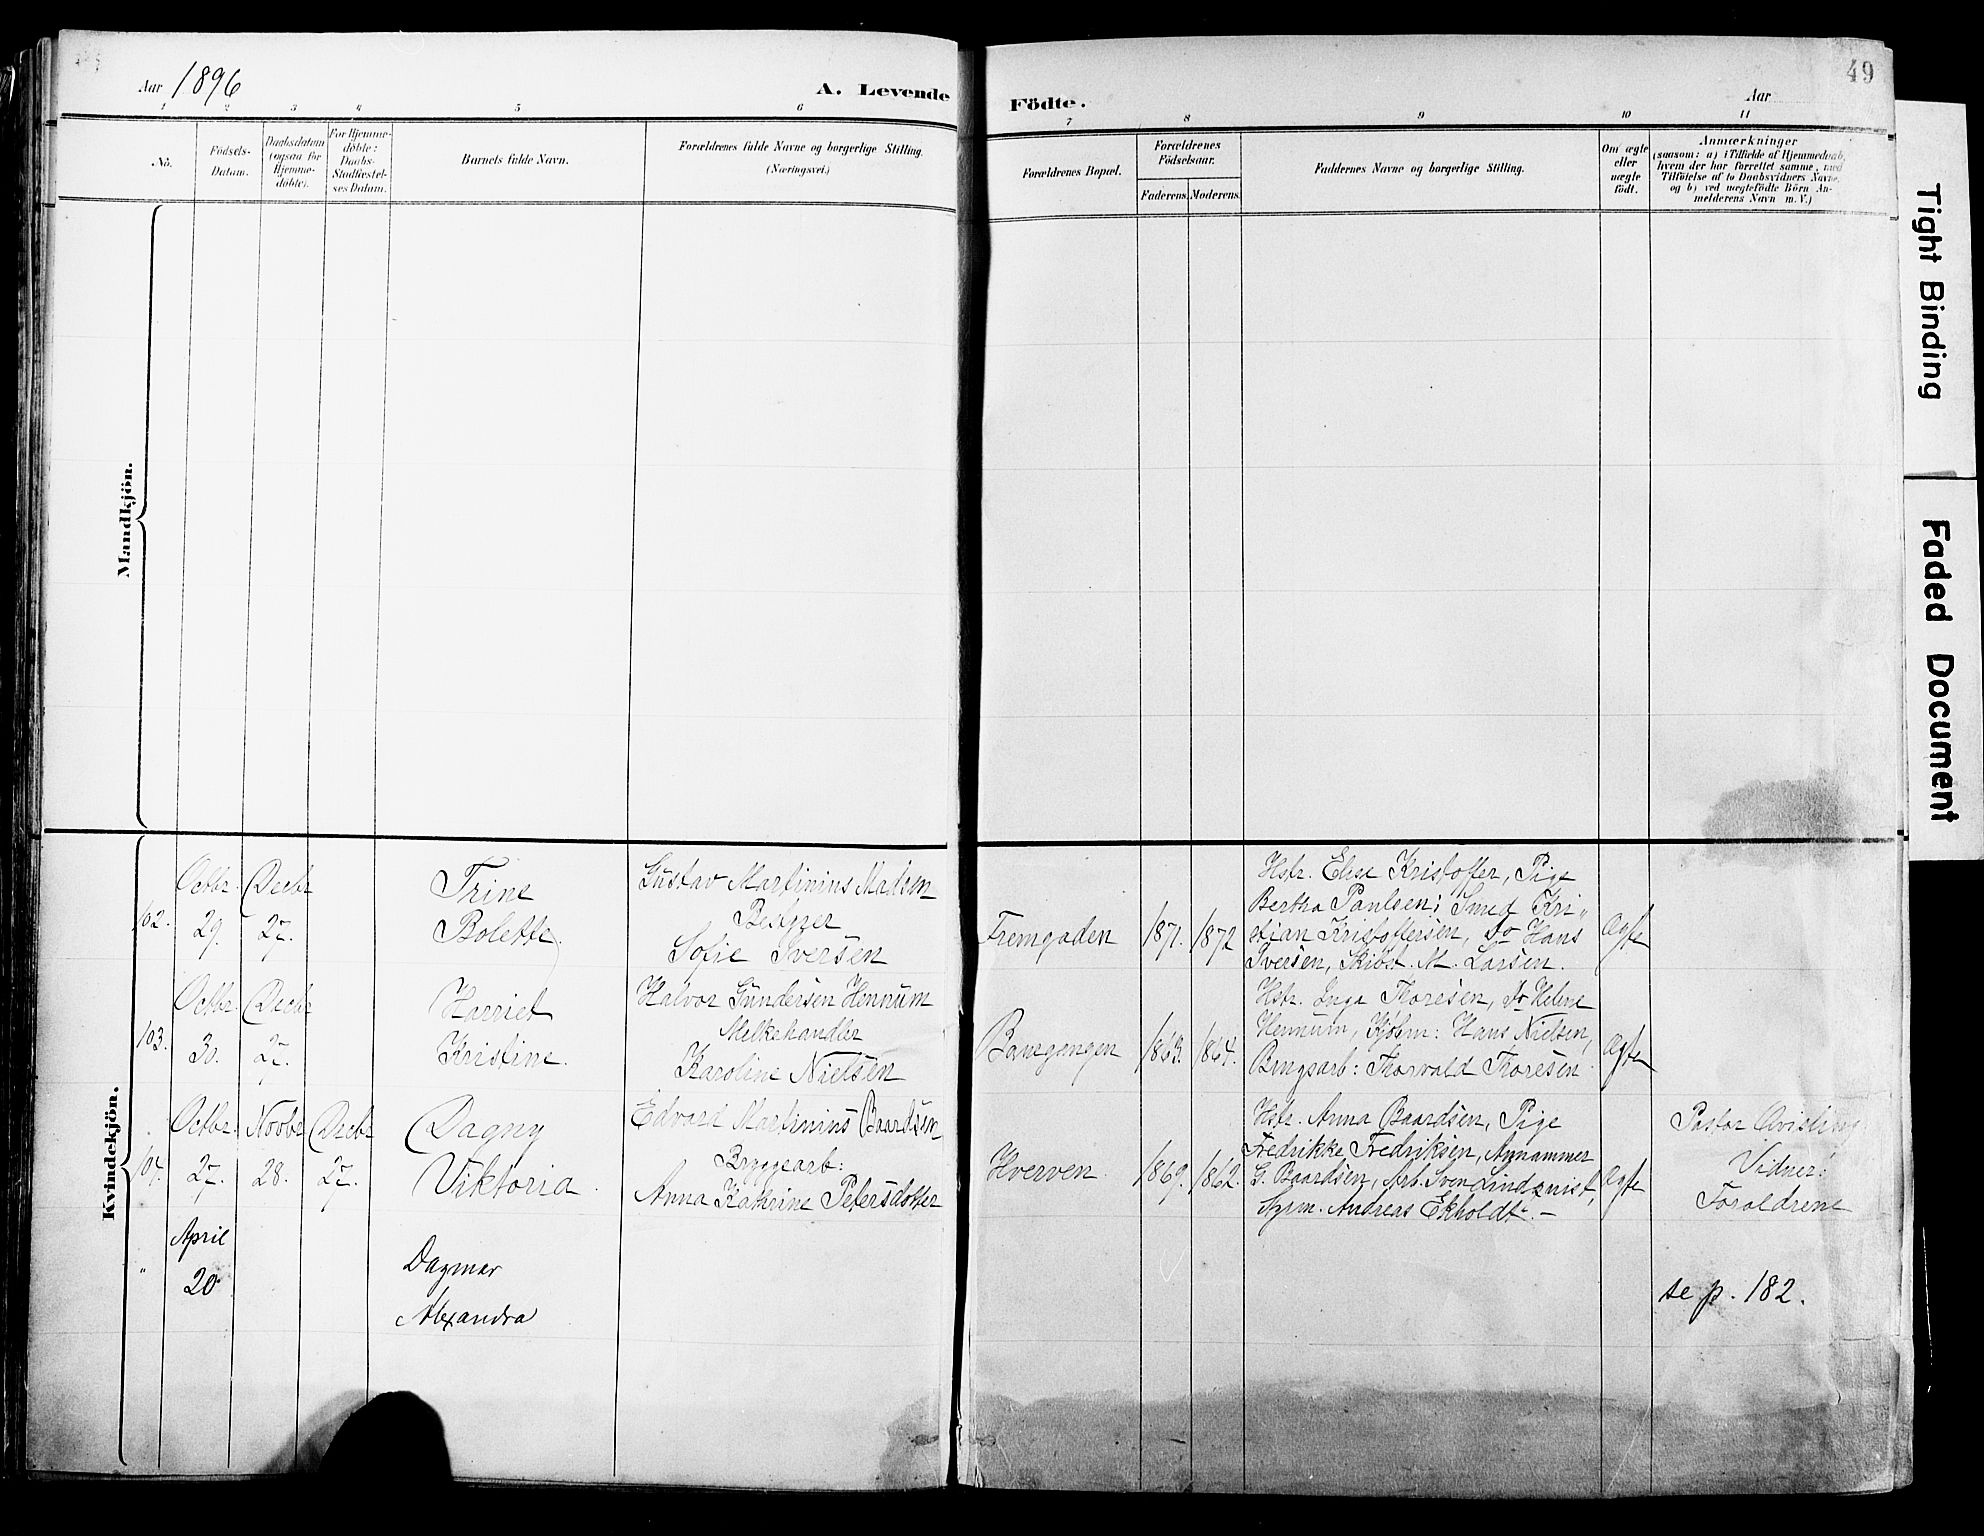 49
Aar 1896
A. Levende Födte.
Aar
1 2 3 4 5 6 7 8 9 10 11
No.
Födsels-
Datum.
Daabsdatum
(ogsaa for
Hjemme-
döbte).
For Hjemme-
döbte:
Daabs-
Stadfæstel-
ses Datum.
Barnets fulde Navn.
Forældrenes fulde Navne og borgerlige Stilling.
(Næringsvei.)
Forældrenes Bopæl.
Forældrenes
Födselsaar.
Faderens. Moderens.
Faddernes Navne og borgerlige Stilling.
Om ægte
eller
uægte
født.
Anmærkninger
(saasom: a) i Tilfælde af Hjemmedaab,
hvem der har forrettet samme, med
Tilföielse af to Daabsvidners Navne,
og b) ved uægtefödte Börn An-
melderens Navn m. V.)
Mandkjön.
Kvindekjön.
102.
Octbr.
29.
Decbr
27.
Trine
Bolette
Gustav Martinius Madsen
Bestyrer
Sofie Iversen
Fremgaden
1871.
1872
Hstr. Elise Kristoffer, Pige
Bertha Paulsen; Smed Kri-
stian Kristoffersen, Do Hans
Iversen, Skibst. M. Larsen.
Ægte
103.
Octbr.
30.
Decbr
27.
Harriet
Kristine.
Halvor Gundersen Hennum
Melkehandler
Karoline Nielsen
1863.
1864.
Hstr. Inga Thoresen, Do Helene
Hennum, Kjøbm: Hans Nielsen,
Brugsarb: Thorvald Thoresen
Ægte
104.
Octbr.
27.
Novbr
28.
Decbr
27.
Dagny
Viktoria.
Edvard Martinius Baardsen
Bryggearb:
Anna Kathrine Petersdotter
Hverven.
1869.
1862.
Hstr. Anna Baardsen, Pige
Fredrikke Fredriksen,
G. Baardsen, Arb. Sven Lindqvist,
Andreas Ekholdt. -
Ægte
Pastor Qvisling
Vidner:
Forældrene
"
April
20
Dagmar
Alexandra
se p. 182.
Tight Binding
Faded Document